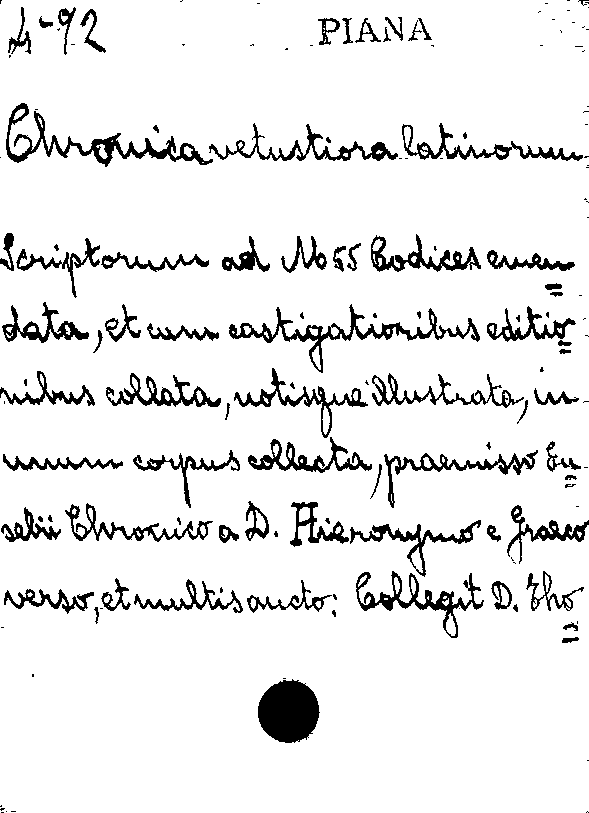 4-92
PIANA
Chronica vetustiora latinorum
Scriptorum ad MSS Codices emen=
data, et cum castigationibus editio=
nibus collata, notisque illustrata, in
unum corpus collecta, praemisso Eu=
sebii Chronico a D. Hieronymo e Graeco
verso, et multis aucto; Collegit D. Tho=